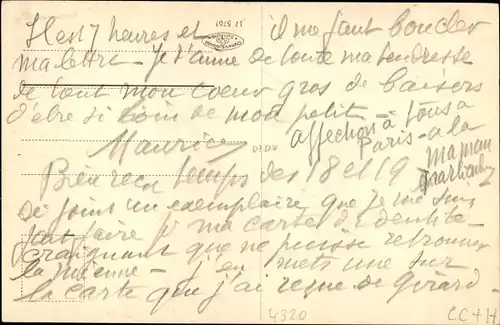 Il est 7 heures et il me faut boucler
ma lettre - Je t'aime de toute ma tendresse
de tout mon coeur gros de baisers
d'être si loin de mon petit -
Affection à tous à
Paris - à la
maman
Maurice
Bien reçu temps des 18 et 19
Ci joint un exemplaire que je me suis
fait faire ma carte d'identité
craignant que ne puisse retrouver
la mienne - j'en mets une sur
la carte que j'ai reçue de Girard -
17 5761
4320
CC+H